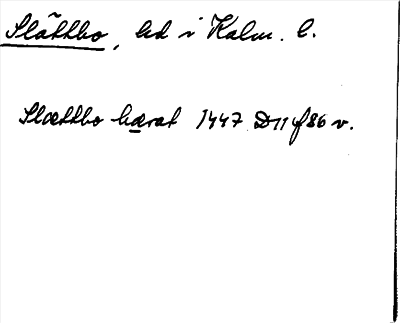 Slättbo, hd i Kalm. l.
Slættbo hærat 1447 D11 f 86 v.